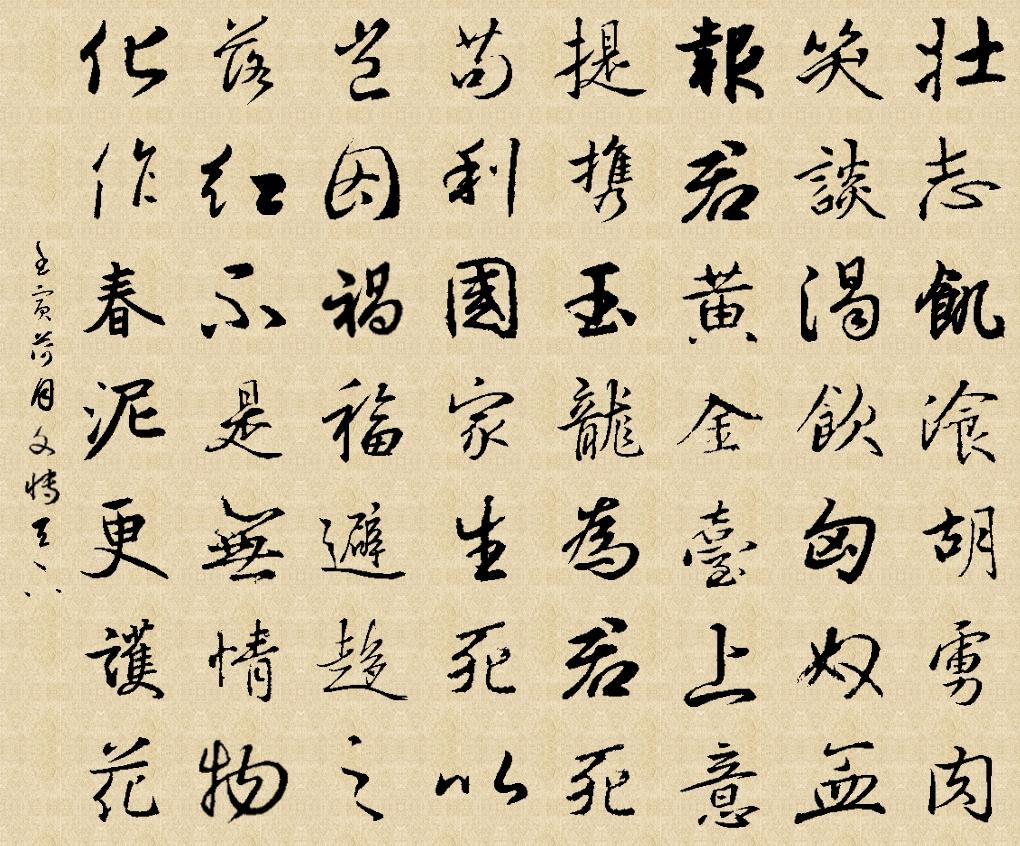 壯志飢湌胡虜肉
笑談渴飲匈奴血
報君黃金臺上意
提携玉龍為君死
苟利國家生死以
豈因禍福避趨之
落紅不是無情物
化作春泥更護花
壬寅荷月文